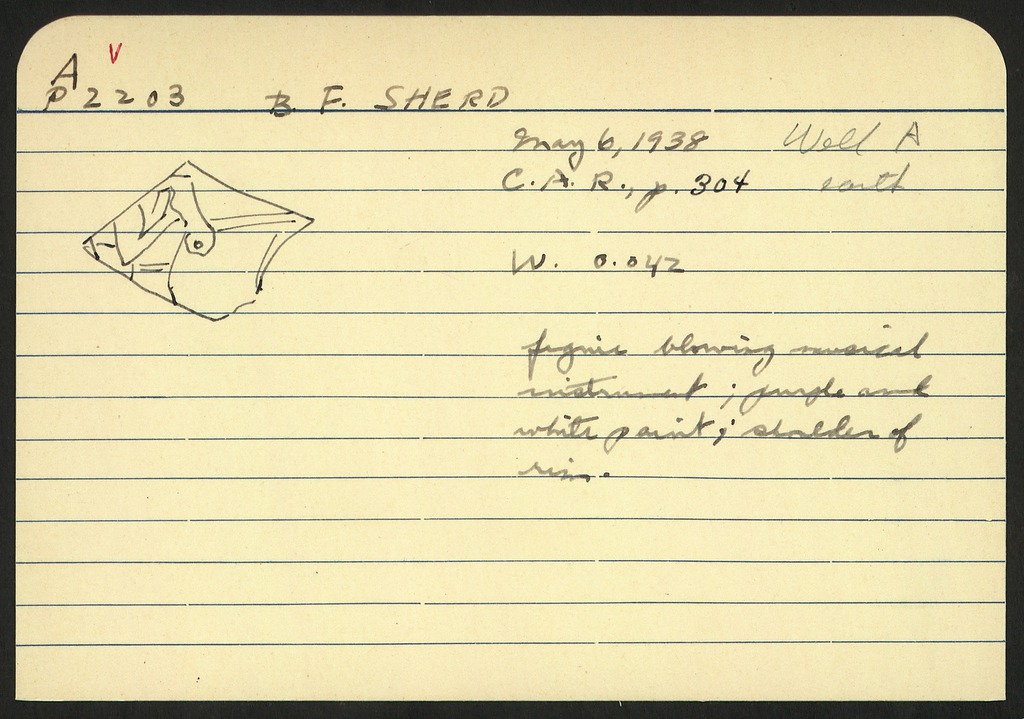 A V
P 2203 B. F. SHERD
May 6, 1938 Well A
C. A. R., p. 304 earth
W. 0.042
figure blowing musical
instrument; purple and
white paint; shoulder of
rim.